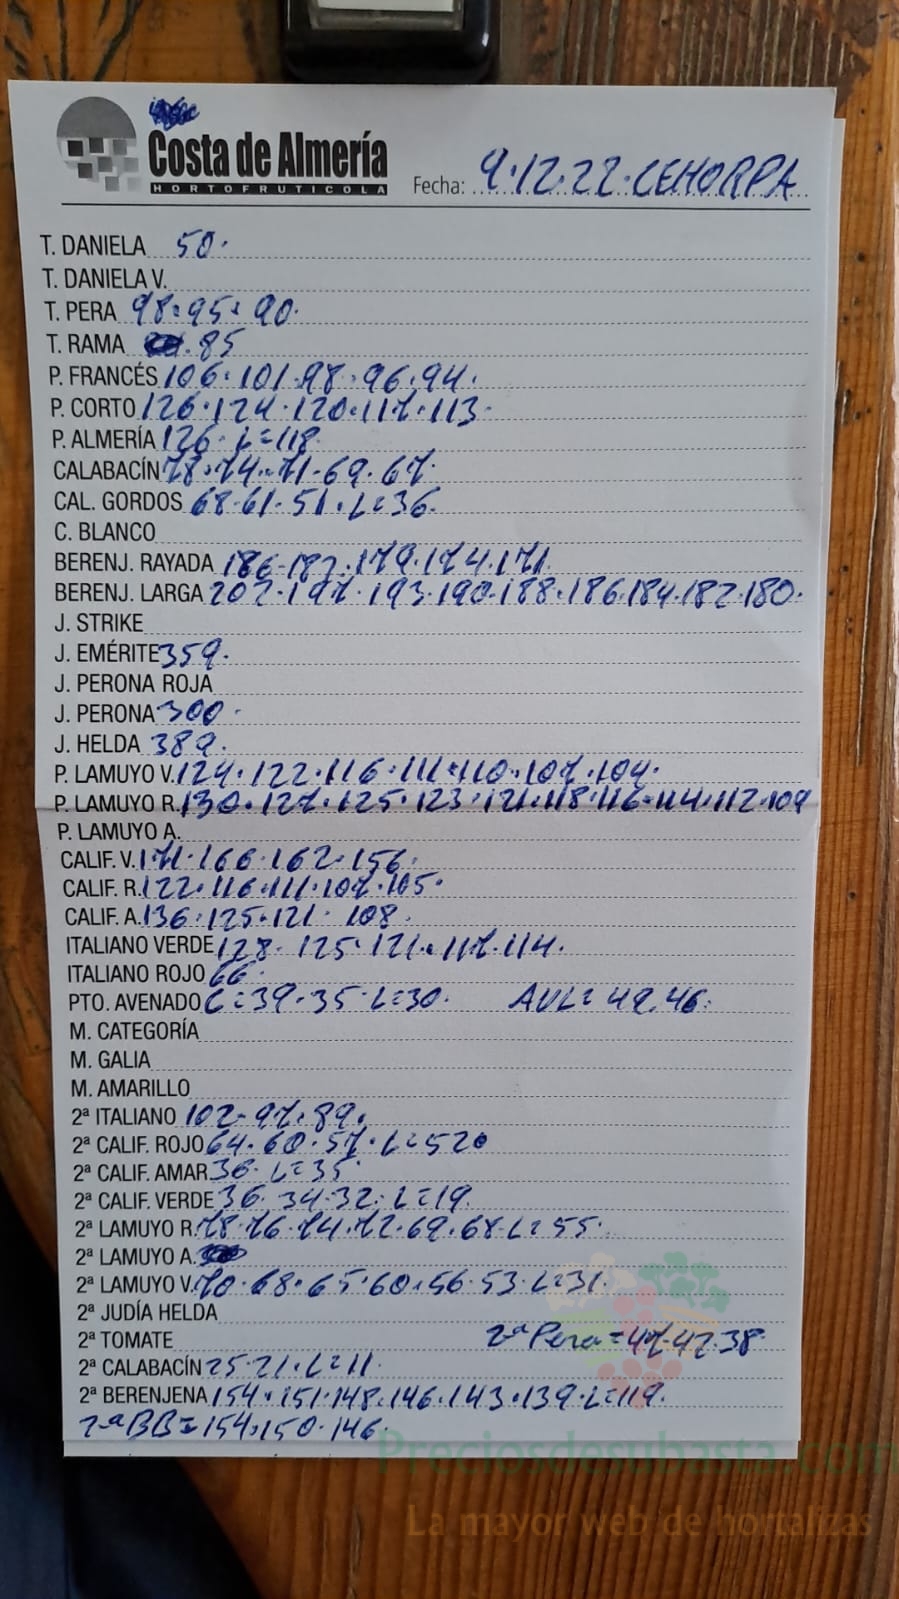 Costa de Almería
HORTOFRUTICOLA
Fecha: 9.12.22.CEHORPA
T. DANIELA 50.
T. DANIELA V.
T. PERA 98.95.90.
T. RAMA .85
P. FRANCÉS 106.101.98.96.94.
P. CORTO 126.124.120.117.113.
P. ALMERÍA 126. L=118.
CALABACÍN 78.74.71.69.67.
CAL. GORDOS 68.61.51.L=36.
C. BLANCO
BERENJ. RAYADA 186.182.179.174.171.
BERENJ. LARGA 202.197.193.190.188.186.184.182.180.
J. STRIKE
J. EMÉRITE 359.
J. PERONA ROJA
J. PERONA 300.
J. HELDA 389.
P. LAMUYO V. 124.122.116.111.110.107.104.
P. LAMUYO R. 130.127.125.123.121.118.116.114.112.109
P. LAMUYO A.
CALIF. V. 171.166.162.156.
CALIF. R. 122.116.111.107.105.
CALIF. A. 136.125.121. 108.
ITALIANO VERDE 128. 125. 121.117.114.
ITALIANO ROJO 66.
PTO. AVENADO C=39.35.L=30. AVL=49.46.
M. CATEGORÍA
M. GALIA
M. AMARILLO
2ª ITALIANO 102.97.89.
2ª CALIF. ROJO 64.60.57.L=52.
2ª CALIF. AMAR 36. L=35.
2ª CALIF. VERDE 36.34.32.L=19.
2ª LAMUYO R. 78.76.74.72.69.68.L=55.
2ª LAMUYO A.
2ª LAMUYO V. 70.68.65.60.56.53.L=31.
2ª JUDÍA HELDA
2ª TOMATE 2ª Pera=47.42.38.
2ª CALABACÍN 25.21.L=11
2ª BERENJENA 154.151.148.146.143.139.L=119.
2ª BB=154.150.146.
Preciosdesubasta.com
La mayor web de hortalizas